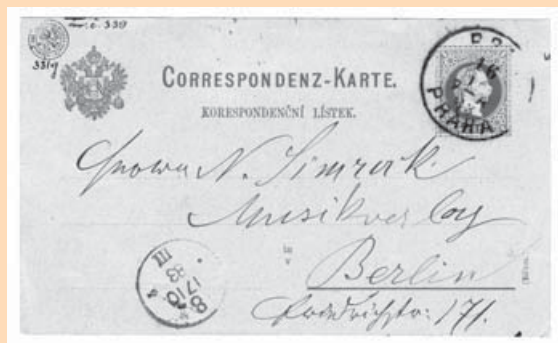 č. 339
339
CORRESPONDENZ-KARTE.
KORESPONDENČNÍ LÍSTEK.
PRAHA
16
N. Simrock
Musikverlag
in
v
Berlin
Friedrichstr: 171.
8
17 10
83
III